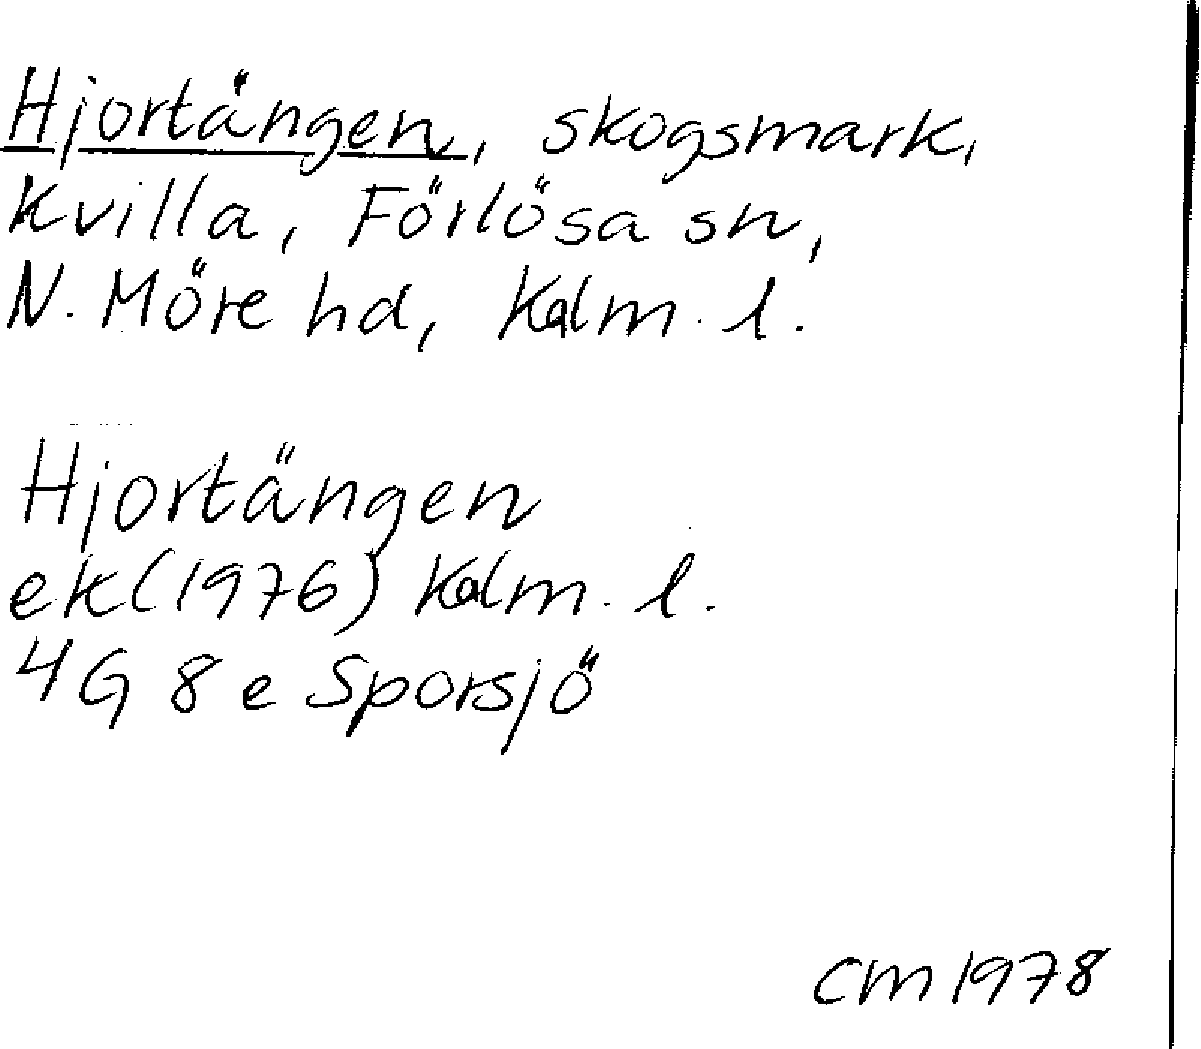 Hjortängen, skogsmark,
Kvilla, Förlösa sn,
N. Möre hd, Kalm. l.
Hjortängen
ek (1976) Kalm. l.
4G 8e Sporsjö
CM 1978